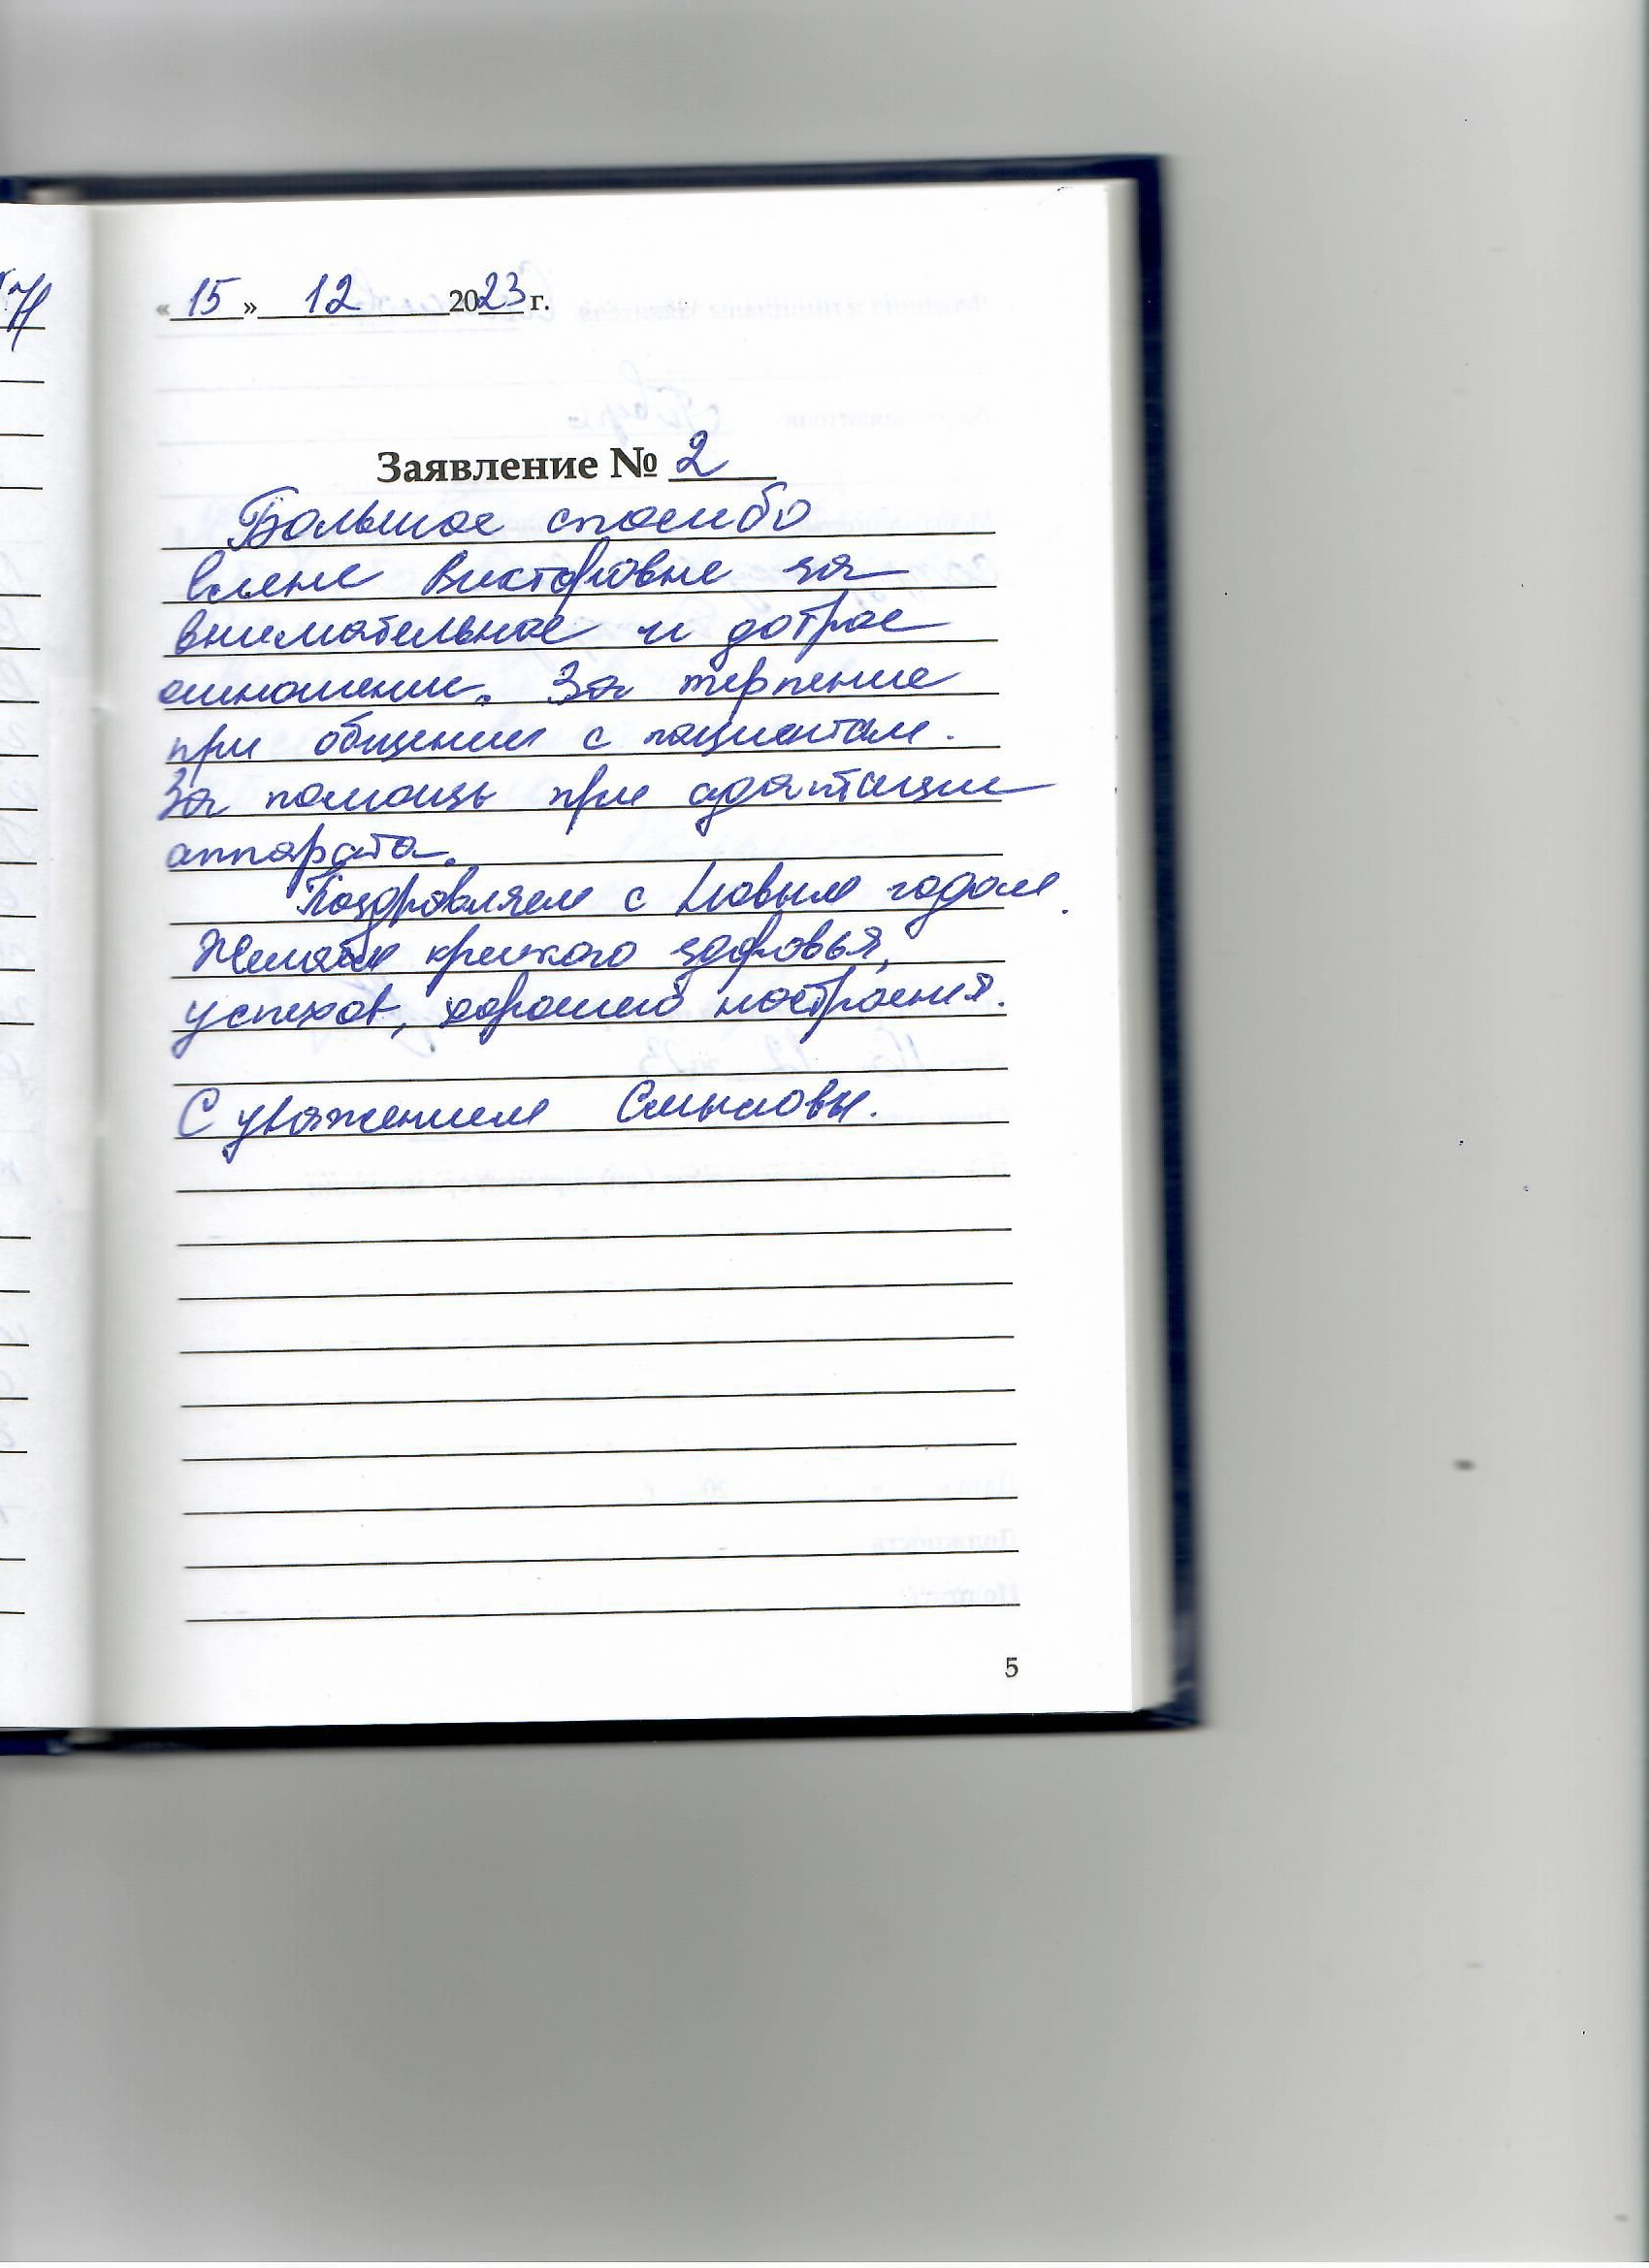 « 15 » 12 2023 г.
Заявление № 2
Большое спасибо
Елене Викторовне за
внимательное и доброе
отношение. За терпение
при общении с пациентам.
За помощь при адаптации
аппарата.
Поздравляем с Новым годом.
Желаем крепкого здоровья,
успехов, хорошего настроения.
С уважением Смысловы.
5